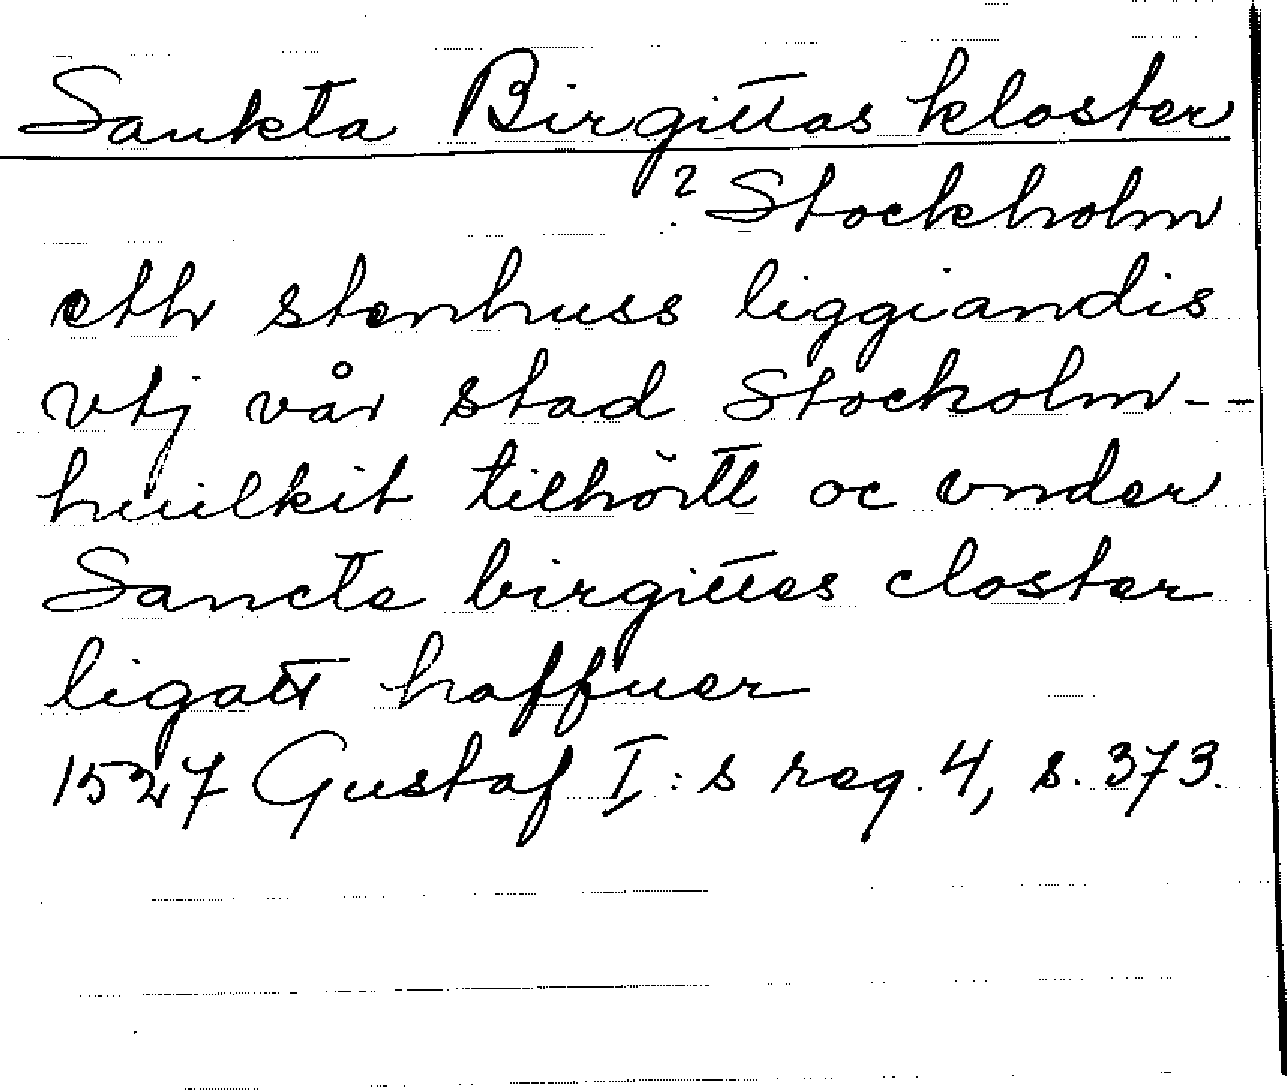 Sankta Birgittas kloster
? Stockholm
eth stenhuss liggiandis
vtj vår stad Stockolm--
huilkit tilhörtt oc vnder
Sancte birgittes closter
ligatt haffuer
1527 Gustaf I:s reg. 4, s. 373.